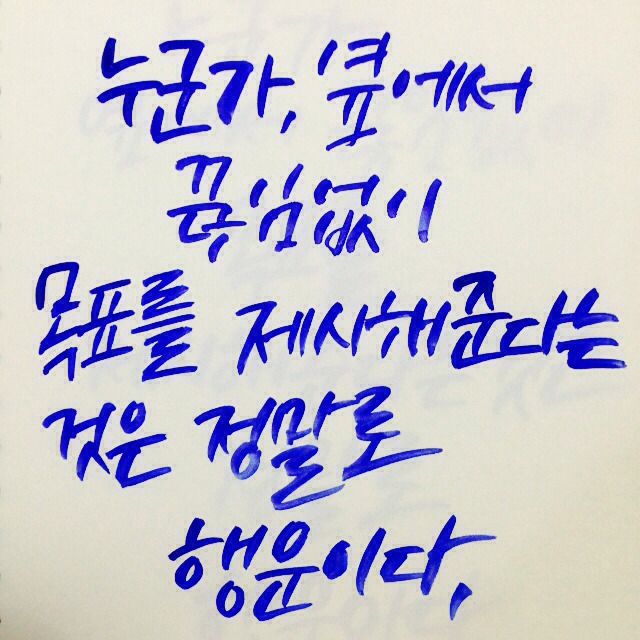 누군가, 옆에서
끊임없이
목표를 제시해준다는
것은 정말로
행운이다,